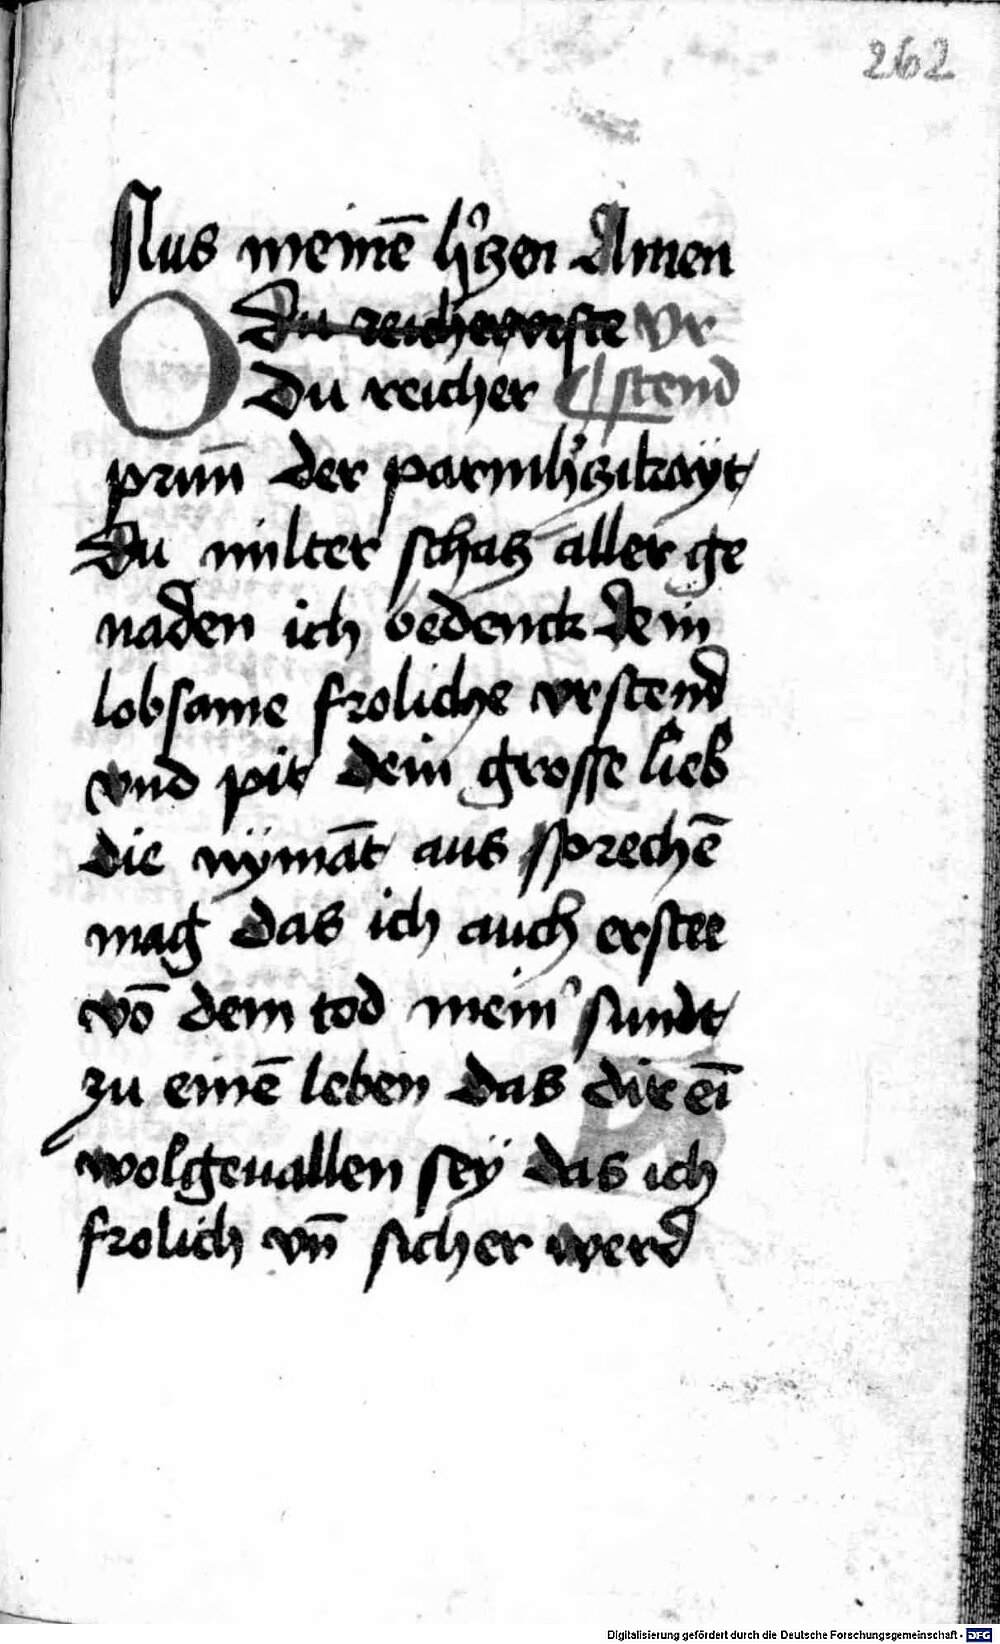 262
Aus meinē h̓czen Amen
O Du reicher vrste Vr
Du reicher stend
prunn̄ der parmh̓czikayt
Du milter schacz aller ge
naden ich bedenck dein
lobsame froliche vrstend
vnd pit dein grosse lieb
die nÿmāt aus sprechē
mag das ich auch erstee
vō dem tod mein̓ sundt
zu einē leben das dir eī
wolgeuallen seÿ das ich
frolich vn̄ sicher werd
Digitalisierung gefördert durch die Deutsche Forschungsgemeinschaft - DFG